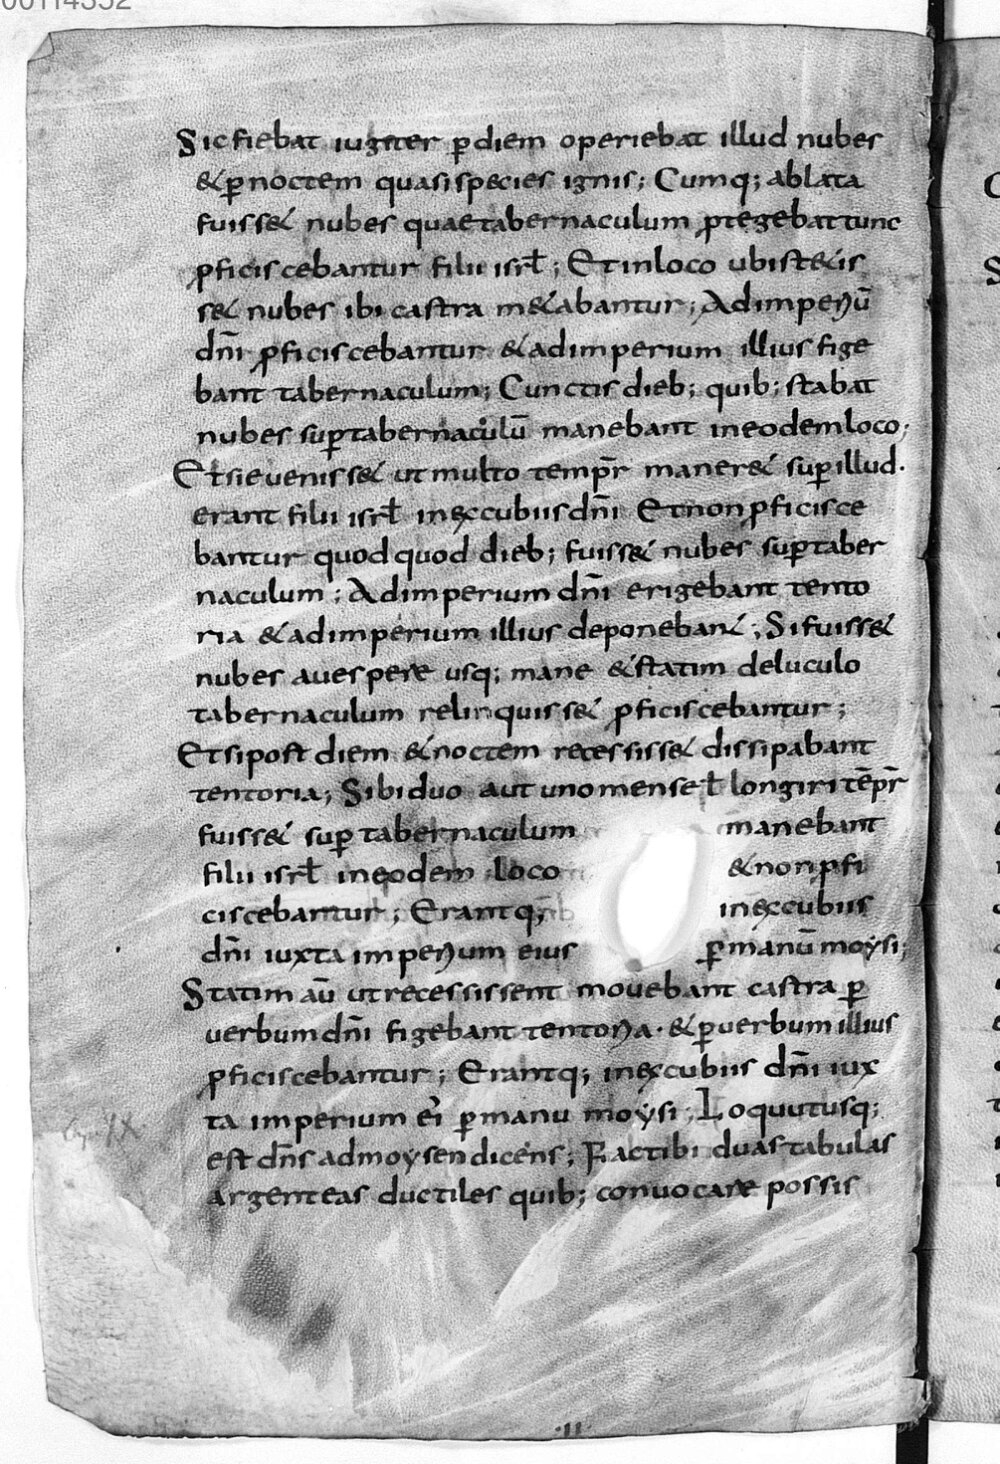 00114352
Sic fiebat iugiter ꝑdiem operiebat illud nubes
&ꝑnoctem quasi species ignis; Cumq; ablata
fuiss& nubes quae tabernaculum ꝓtegebat tunc
ꝓficiscebantur filii isrł; Et inloco ubi st&is
s& nubes ibi castra m&abantur; Adimperiū
dn̄i ꝓficiscebantur &adimperium illius fige
bant tabernaculum; Cunctis dieb; quib; stabat
nubes suꝑtabernaculū manebant ineodemloco;
Et si eueniss& ut multo temp̄r maner& suꝑillud.
erant filii isrł inexcubiis dn̄i Etnonꝓficisce
bantur quod quod dieb; fuiss& nubes suꝑtaber
naculum; Adimperium dn̄i erigebant tento
ria &adimperium illius deponeban&; Si fuiss&
nubes auespere usq; mane &statim deluculo
tabernaculum relinquiss& ꝓficiscebantur;
Etsi post diem &noctem recessiss& dissipabant
tentoria; Sibiduo aut uno mense ł longiri tēp̄r
fuiss& suꝑ tabernaculum manebant
filii isrł ineodem loco &nonꝓfi
ciscebantur; Erantq; inexcubiis
dn̄i iuxta imperium eius ꝑmanū moysi;
Statim aū ut recessissent mouebant castra ꝑ
uerbum dn̄i figebant tentoria. &ꝑuerbum illius
ꝓficiscebantur; Erantq; inexcubiis dn̄i iux
ta imperium ei ꝑmanu moysi; Loquutusq;
est dn̄s admoysen dicens; Factibi duas tabulas
argenteas ductiles quib; conuocare possis